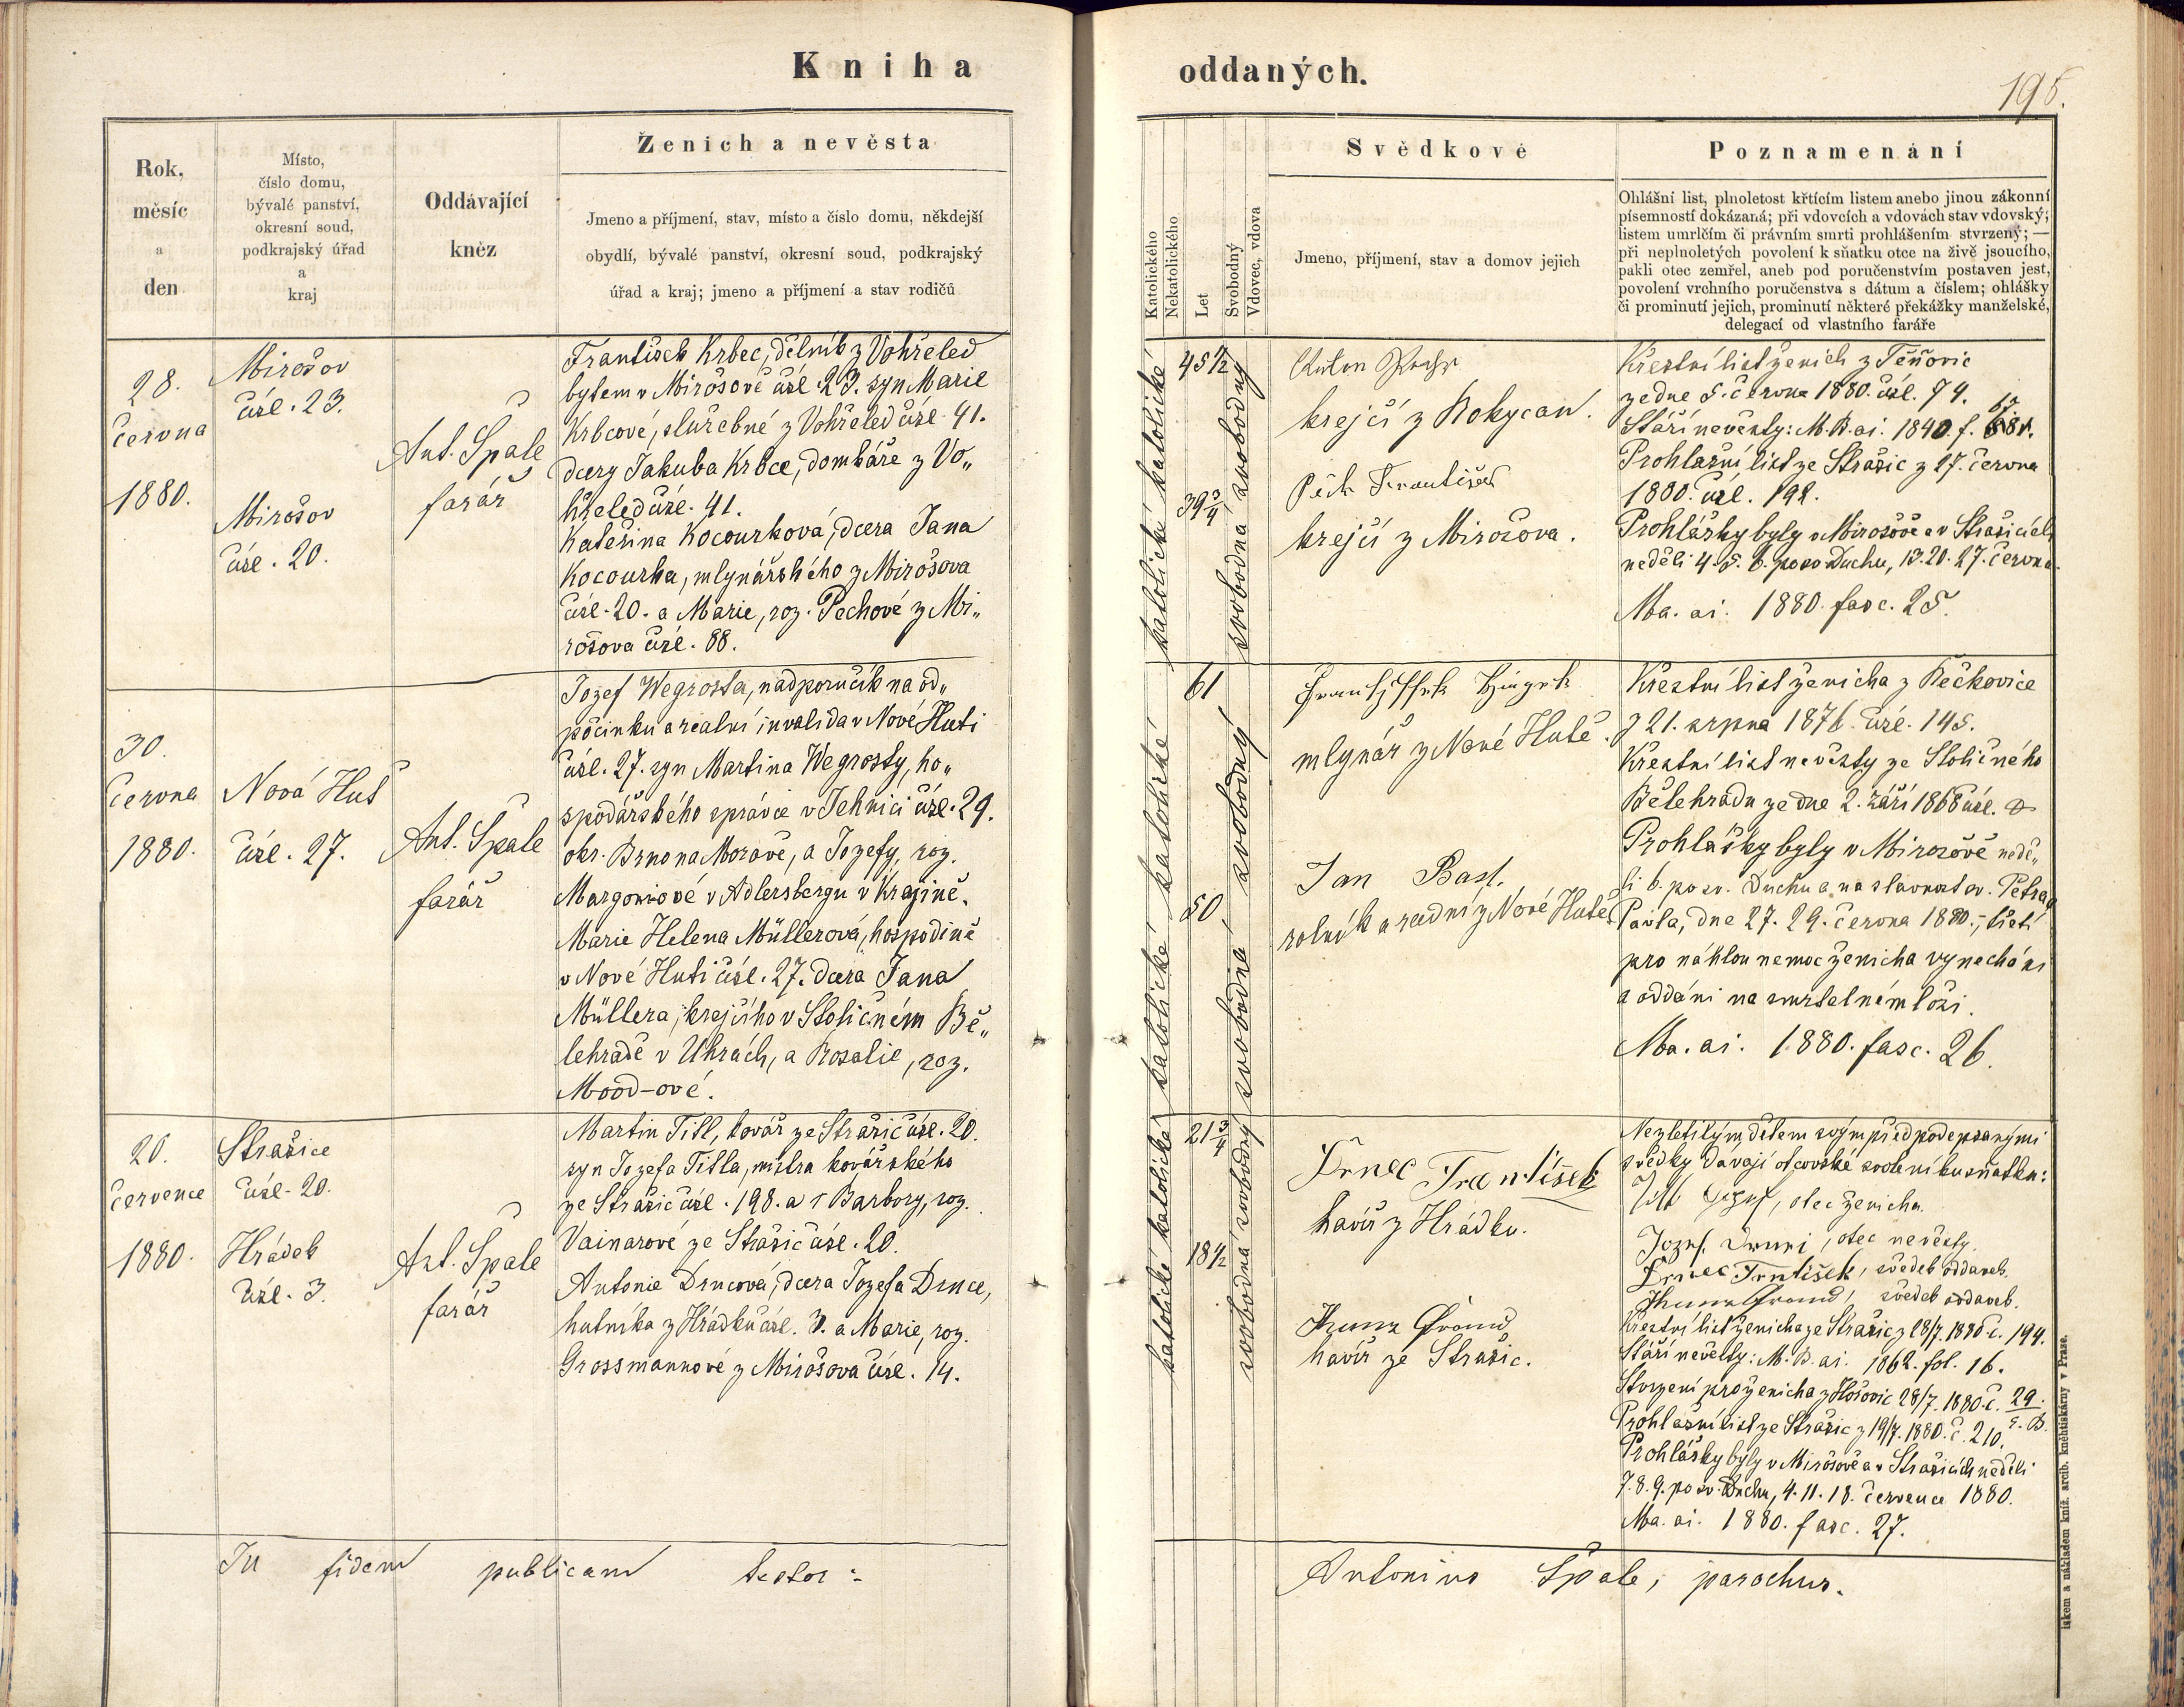 Kniha
oddaných.
195.
Rok,
měsíc
a
den
Místo,
číslo domu,
bývalé panství,
okresní soud,
podkrajský úřad
a
kraj
Oddávající
kněz
Ženich a nevěsta
Jmeno a příjmení, stav, místo a číslo domu, někdejší
obydlí, bývalé panství, okresní soud, podkrajský
úřad a kraj; jmeno a příjmení a stav rodičů
Katolického
Nekatolického
Let
Svobodný
Vdovec, vdova
Svědkové
Jmeno, příjmení, stav a domov jejich
Poznamenání
Ohlášní list, plnoletost křtícím listem anebo jinou zákonní
písemností dokázaná; při vdovcích a vdovách stav vdovský;
listem umrlčím či právním smrti prohlášením stvrzený; —
při neplnoletých povolení k sňatku otce na živě jsoucího,
pakli otec zemřel, aneb pod poručenstvím postaven jest,
povolení vrchního poručenstva s dátum a číslem; ohlášky
či prominutí jejich, prominutí některé překážky manželské,
delegací od vlastního faráře
28.
června
1880.
Mirošov
čísl. 23.
Mirošov
čísl. 20.
Ant. Špale
farář
František Krbec, dělník z Vohřeled
bytem v Mirošově čísl 23. syn Marie
Krbcové, služebné z Vohřeled čísl 41.
dcery Jakuba Krbce, domkáře z Vo„
hřeled čísl. 41.
Kateřina Kocourková, dcera Jana
Kocourka, mlynářského z Mirošova
čísl. 20. a Marie, roz. Pechové z Mi„
rošova čísl. 88.
katolické katolické
45 1/2
39 3/4
svobodná svobodný
Anton
krejčí z Rokycan.
Pech František
krejčí z Mirošova.
Křestní list ženich z Těňovic
ze dne 5. června 1880. čísl. 74.
Stáří nevěsty: M. R. ai. 1840. f.
Prohlašní list ze Strašic z 27. června
1880. čísl. 192.
Prohlášky byly v Mirošově a v Strašicích
neděli 4. 5. 6. po sv Duchu, 13. 20. 27. června.
Ma. ai. 1880. fasc. 25.
30.
června
1880.
Nová Huť
čísl. 27.
Ant. Špale
farář
Jozef Wegrosta, nadporučík na od„
počinku a realní invalida v Nové Huti
čísl. 27. syn Martina Wegrosty, ho„
spodářského správce v Jehnici čísl. 29.
okr. Brno na Moravě, a Jozefy, roz.
Margoniové v Adlersbergu v Krajině.
Marie Helena Müllerová, hospodině
v Nové Huti čísl. 27. dcera Jana
Müllera, krejčího v Stoličném Bě„
lehradě v Uhrách, a Rosalie, roz.
Mood-ové.
katolické katolické
61
50
svobodná svobodný
mlynář z Nové Hutě.
Jan Bast.
rolník a radní z Nové Hutě
Křestní list ženicha z Řečkovice
z 21. srpna 1876. čísl. 145.
Křestní list nevěsty ze Stoličného
Bělehradu ze dne 2. září 1868 čísl.
Prohlášky byly v Mirošově nedě„
li 6. po sv. Duchu a na slavnost sv. Petra a
Pavla, dne 27. 29. června 1880., třetí
pro náhlou nemoc ženicha vynecháni
a oddáni na smrtelném loži.
Ma. ai. 1880. fasc. 26.
20.
července
1880.
Strašice
čísl. 20.
Hrádek
čísl. 3.
Ant. Špale
farář
Martin Titl, kovář ze Strašic čísl. 20.
syn Jozefa Titla, mistra kovářského
ze Strašic čísl. 198. a † Barbory, roz.
Vainarové ze Strašic čísl. 20.
Antonie Drncová, dcera Jozefa Drnce,
hutníka z Hrádku čísl. 3. a Marie, roz.
Grossmannové z Mirošova čísl. 14.
katolické katolické
21 3/4
18 1/2
svobodná svobodný
Drnec František
havíř z Hrádku.
havíř ze Strašic.
Nezletilým dětem svým před podepsanými
svědky dávají otcovské svolení ku sňatku:
Titl Josef, otec ženicha.
Jozef, otec nevěsty.
Drnec František, svědek oddaveb.
svědek oddaveb.
Křestní list ženicha ze Strašic z 28/7. 1880 č. 194.
Stáří nevěsty: M. R. ai. 1862. fol. 16.
Stvrzení pro ženicha z Hořovic 28/7. 1880 č. 29
Prohlašní list ze Strašic z 19/7. 1880. č. 210.
Prohlášky byly v Mirošově a v Strašicích neděli
7. 8. 9. po sv. Duchu, 4. 11. 18. července 1880.
Ma. ai. 1880. fasc. 27.
In fidem publicam testor:
Antonius Špale, parochus.
tiskem a nákladem kníž. arcib. kněhtiskárny v Praze.